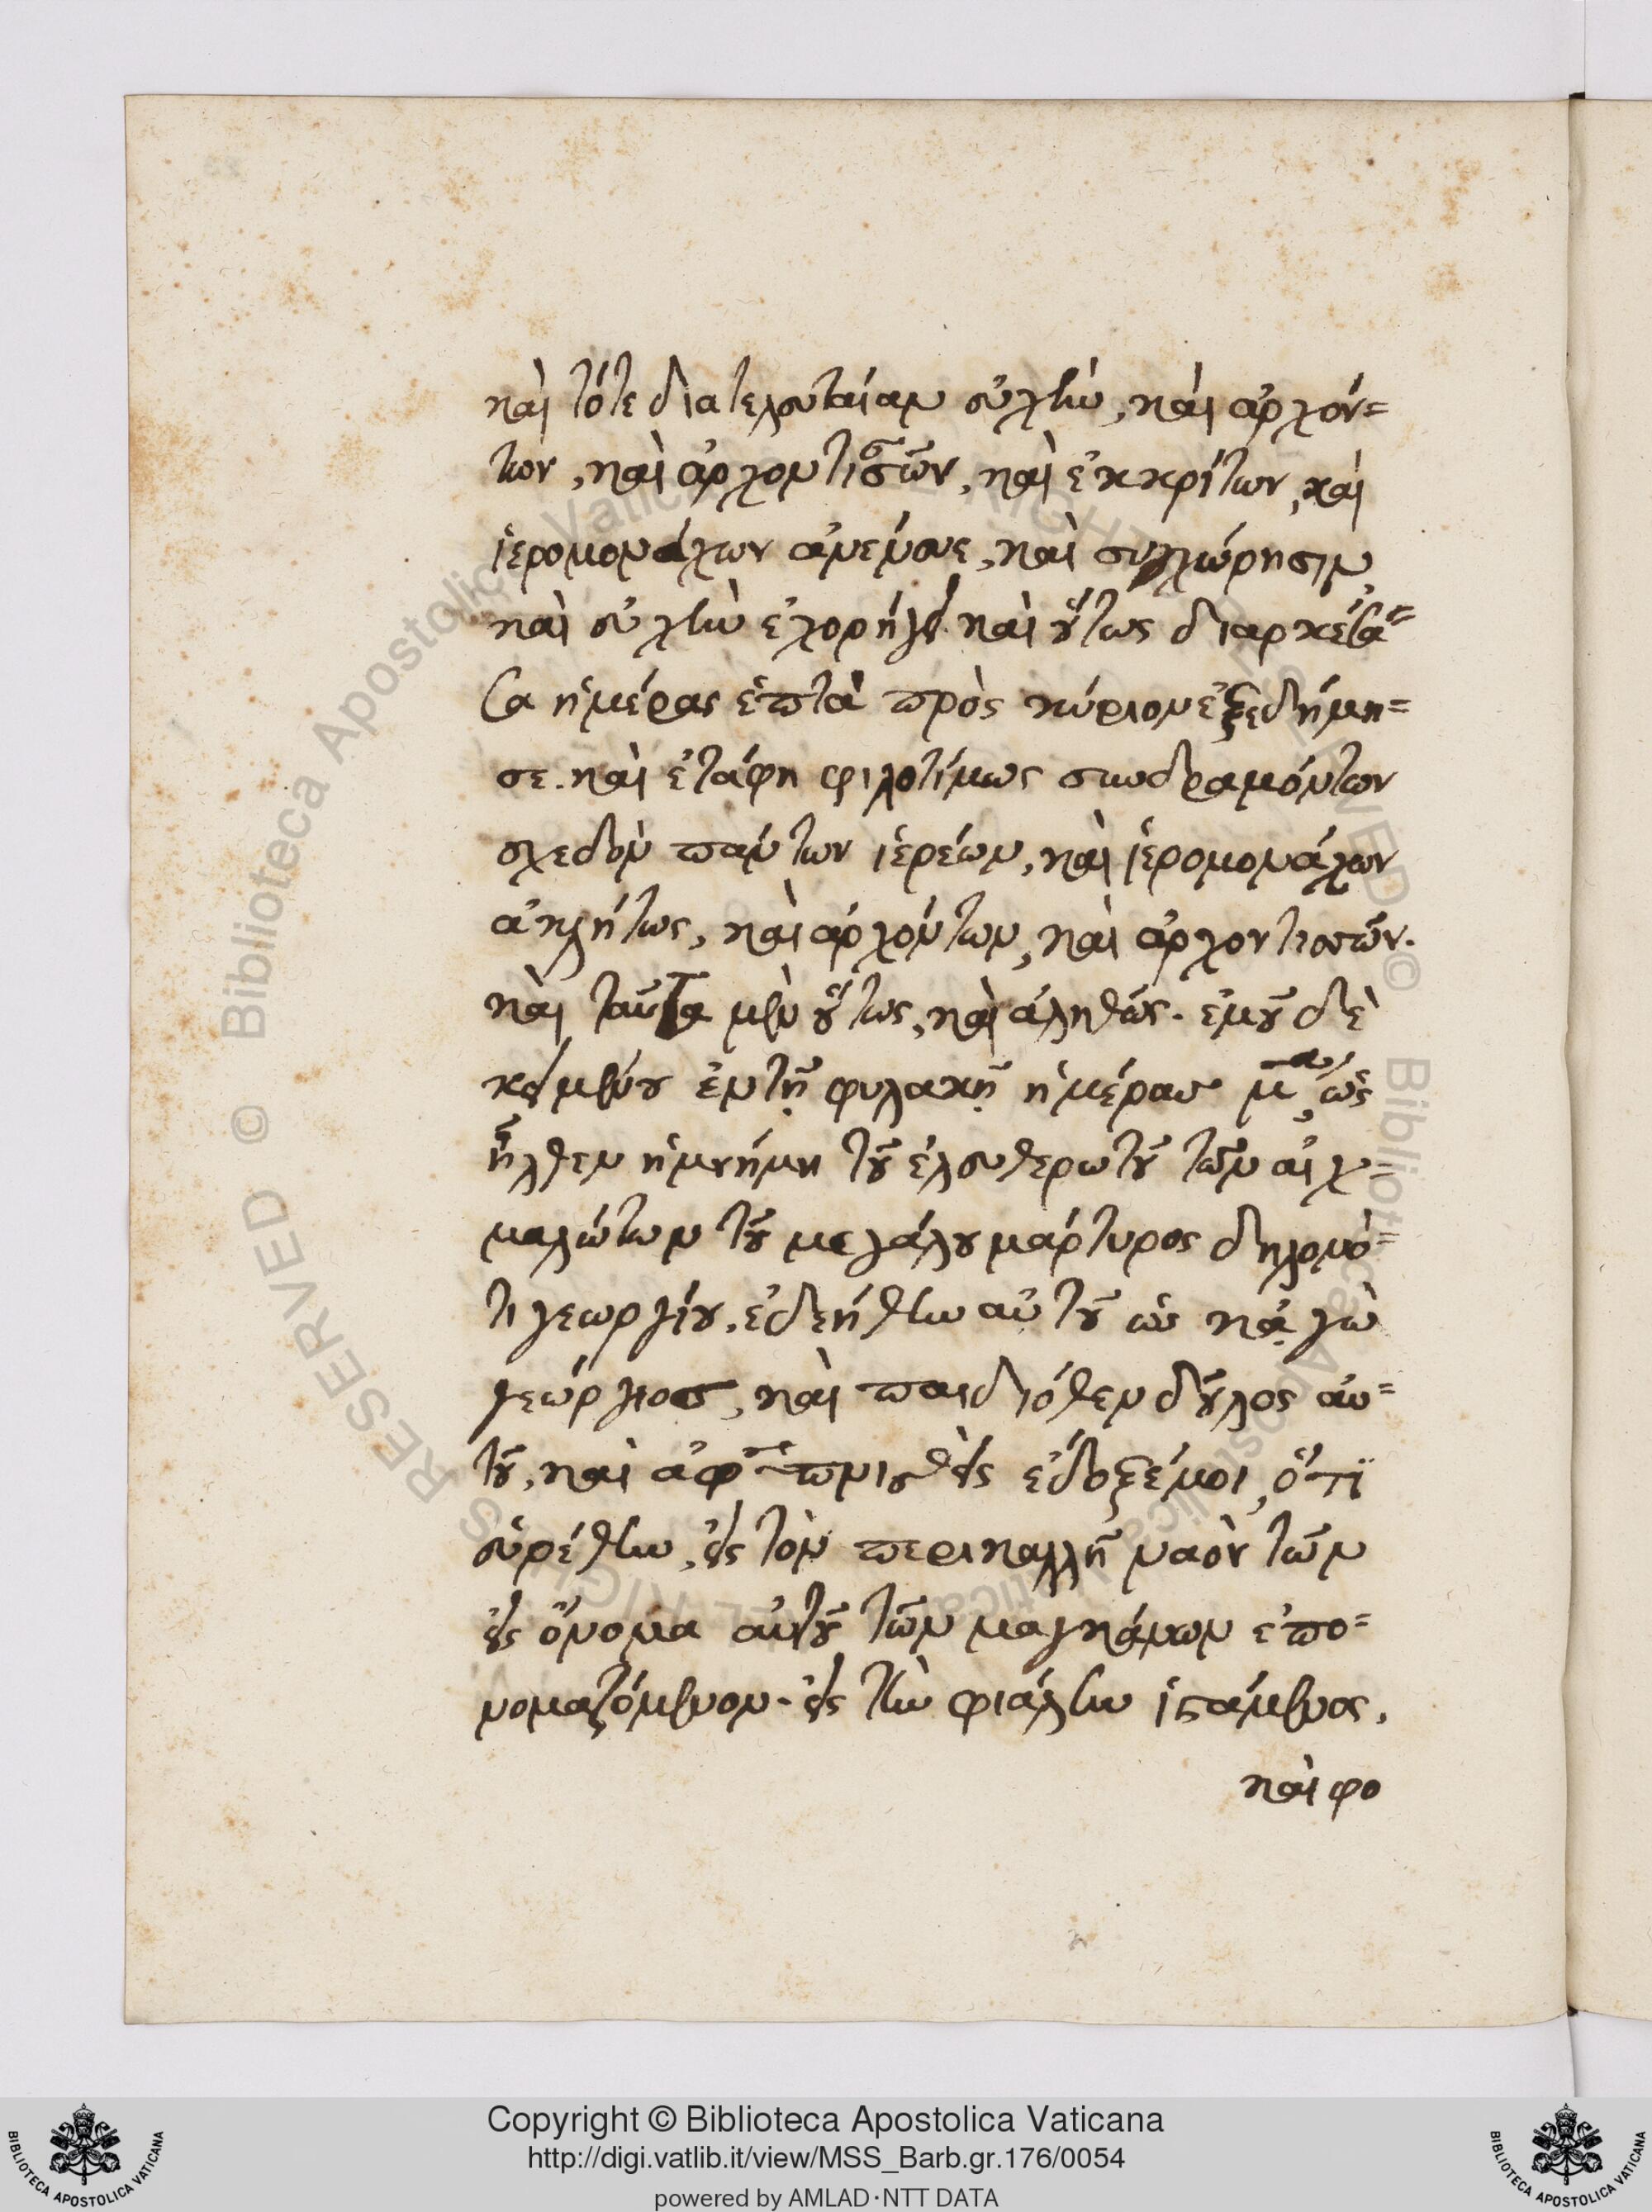 καὶ τότε διατελευταίαν εὐχὴν, καὶ ἀρχόν=
των, καὶ ἀρχοντισσῶν, καὶ ἐκκρίτων, καὶ
ἱερομονάχων ἀνένευσε, καὶ συγχώρησιν
καὶ εὐχὴν ἐχορήγει. καὶ οὕτως διαρκέσα=
σα ἡμέρας ἑπτὰ πρὸς κύριον ἐξεδήμη=
σε. καὶ ἐτάφη φιλοτίμως συνδραμόντων
σχεδὸν πάντων ἱερέων, καὶ ἱερομονάχων
ἀκλήτως, καὶ ἀρχόντων, καὶ ἀρχοντισσῶν.
καὶ ταῦτα μὲν οὕτως, καὶ ἀληθῶς. ἐμοῦ δὲ
κειμένου ἐν τῇ φυλακῇ ἡμέρας μ̅α, ὡς
ἦλθεν ἡ μνήμη τοῦ ἐλευθερωτοῦ τῶν αἰχ=
μαλώτων τοῦ μεγάλου μάρτυρος δηλονό=
τι γεωργίου. ἐδεήθην αὐτοῦ ὡς κᾀγὼ
γεώργιος, καὶ παιδιόθεν δοῦλος αὐ=
τοῦ, καὶ ἀφυπνισθεὶς ἔδοξέ μοι, ὅτι
εὑρέθην, εἰς τὸν περικαλλῆ ναὸν τῶν
εἰς ὄνομα αὐτοῦ τῶν μαγκάνων ἐπο=
νομαζόμενον. εἰς τὴν φιάλην ἱστάμενος,
καὶ φο
Copyright © Biblioteca Apostolica Vaticana
http://digi.vatlib.it/view/MSS_Barb.gr.176/0054
powered by AMLAD·NTT DATA